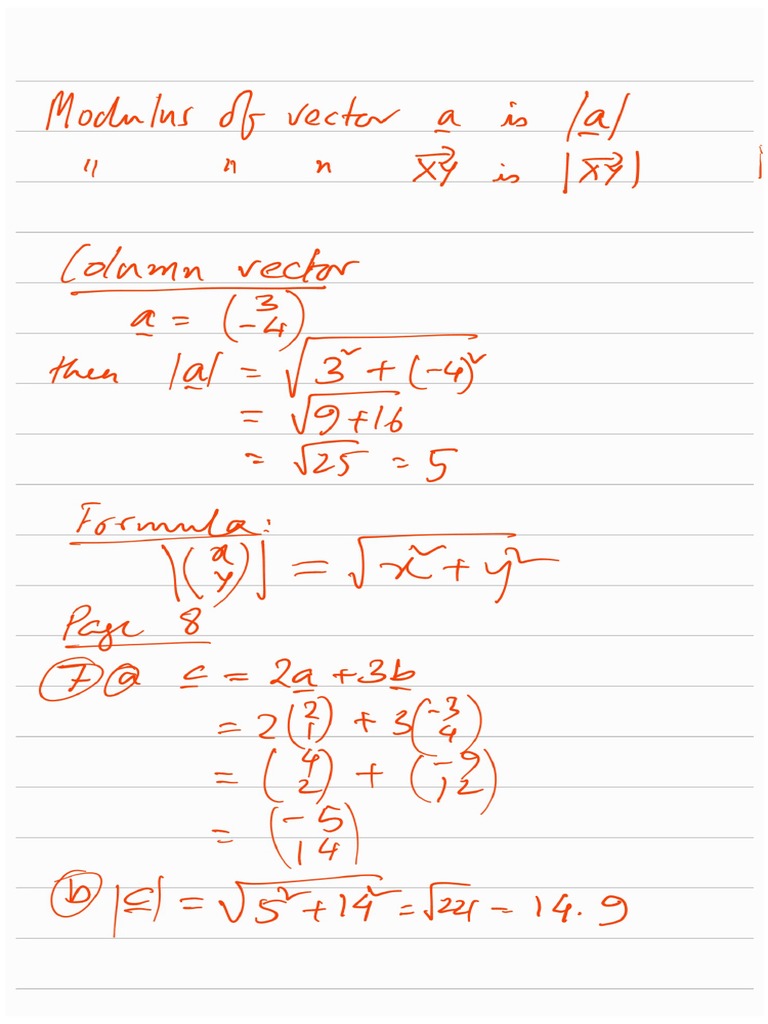 Modulus of vector a is |a|
" " " XY is |XY|
Column vector
a = (3 -4)
then |a| = √3² + (-4)²
= √9+16
= √25 = 5
Formula:
|(x y)| = √x² + y²
Page 8
7 a c = 2a + 3b
= 2(2 1) + 3(-3 4)
= (4 2) + (-9 12)
= (-5 14)
b |c| = √5² + 14² = √221 = 14.9